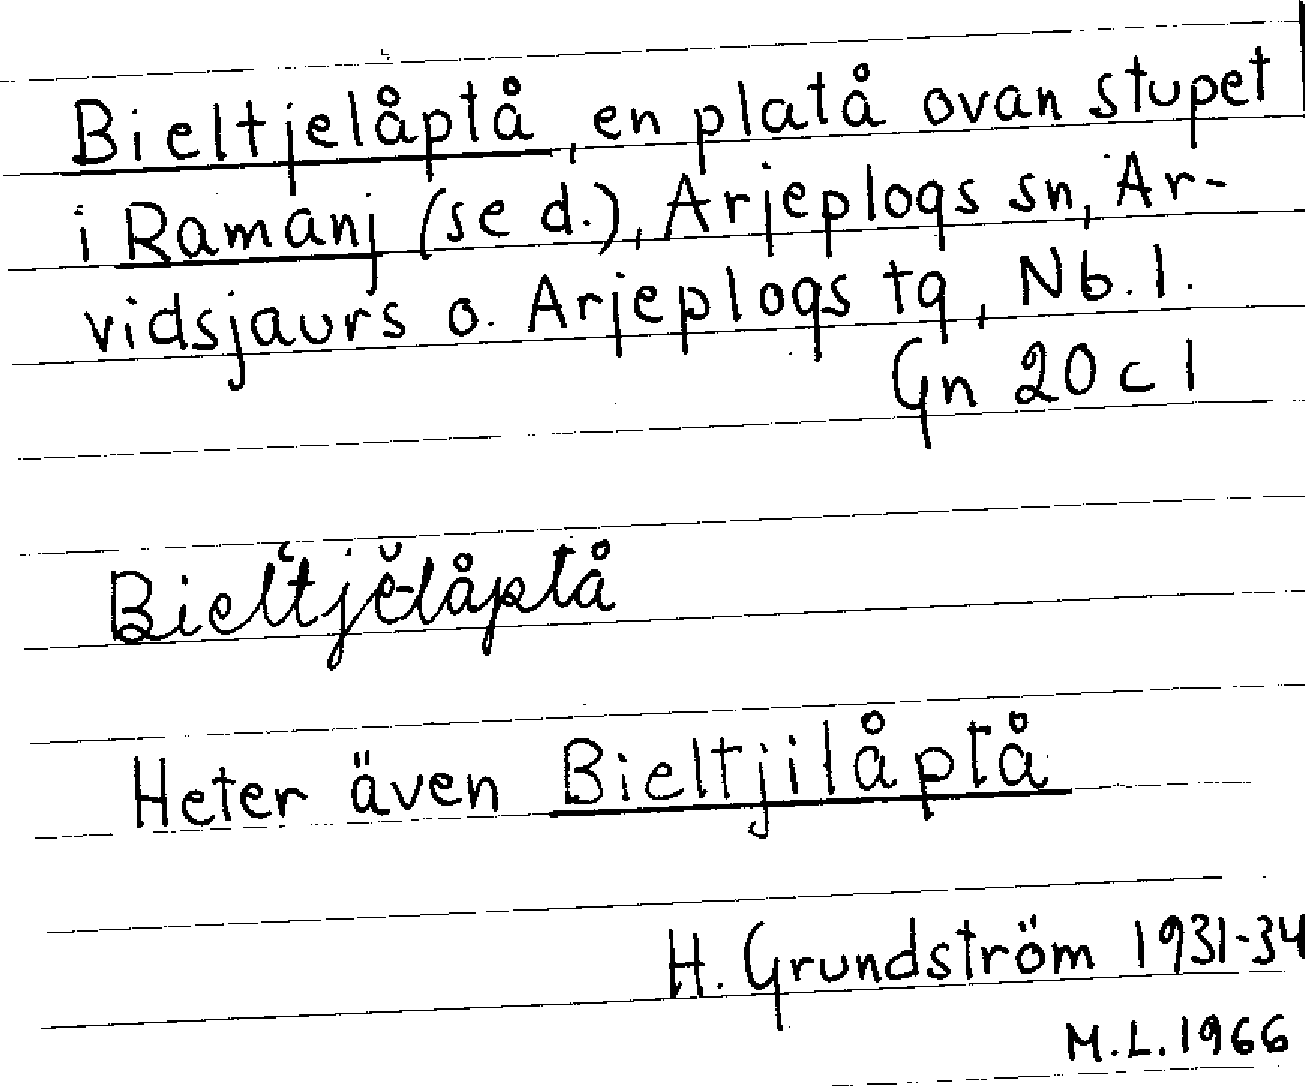 Bieltjelåptå, en platå ovan stupet
i Ramanj (se d.), Arjeplogs sn, Ar-
vidsjaurs o. Arjeplogs tg, Nb. l.
Gn 20 c 1
Bielt̔jĕ-låptå
Heter även Bieltjilåptå
H. Grundström 1931-34
M.L. 1966